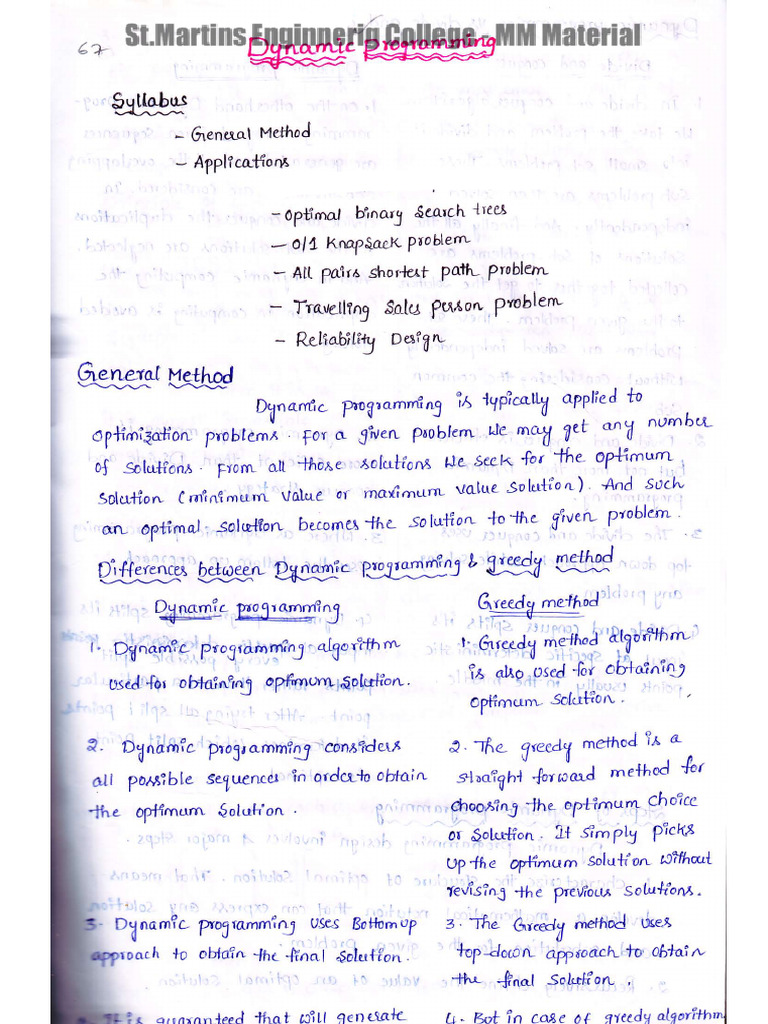 St.Martins Enginnerin College - MM Material
67
Dynamic Programming
Syllabus
- General Method
- Applications
- Optimal binary search trees
- 0/1 Knapsack problem
- All pairs shortest path problem
- Travelling Sales person problem
- Reliability Design
General Method
Dynamic programming is typically applied to
optimization problems. For a given problem we may get any number
of solutions. From all those solutions we seek for the optimum
solution (minimum value or maximum value solution). And such
an optimal solution becomes the solution to the given problem.
Differences between Dynamic programming & greedy method
Dynamic programming
1. Dynamic programming algorithm
used for obtaining optimum solution.
2. Dynamic programming considers
all possible sequences in order to obtain
the optimum solution.
3. Dynamic programming uses Bottom up
approach to obtain the final solution.
It is guaranteed that will generate
Greedy method
1. Greedy method algorithm
is also used for obtaining
optimum solution.
2. The greedy method is a
straight forward method for
choosing the optimum choice
or solution. It simply picks
up the optimum solution without
revising the previous solutions.
3. The Greedy method uses
top-down approach to obtain
the final solution.
4. But in case of greedy algorithm